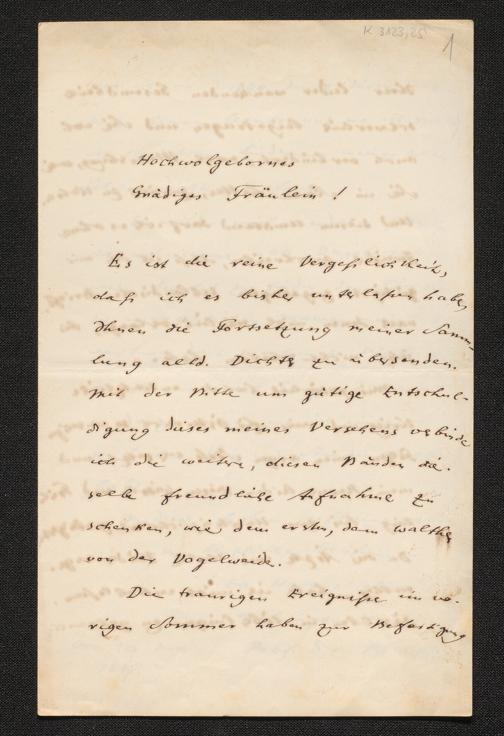 K 3123,25
1
Hochwolgebornes
Gnädiges Fräulein!
Es ist die reine Vergeßlichkeit,
daß ich es bisher unterlaßen habe,
Ihnen die Fortsetzung meiner Samm-
lung altd. Dichter zu übersenden.
Mit der Bitte um gütige Entschul-
digung dieses meines Versehens verbinde
ich die weitere, diesen Bänden die-
selbe freundliche Aufnahme zu
schenken, wie dem ersten, dem Walther
von der Vogelweide.
Die traurigen Ereigniße im vo-
rigen Sommer haben zur Befestigung